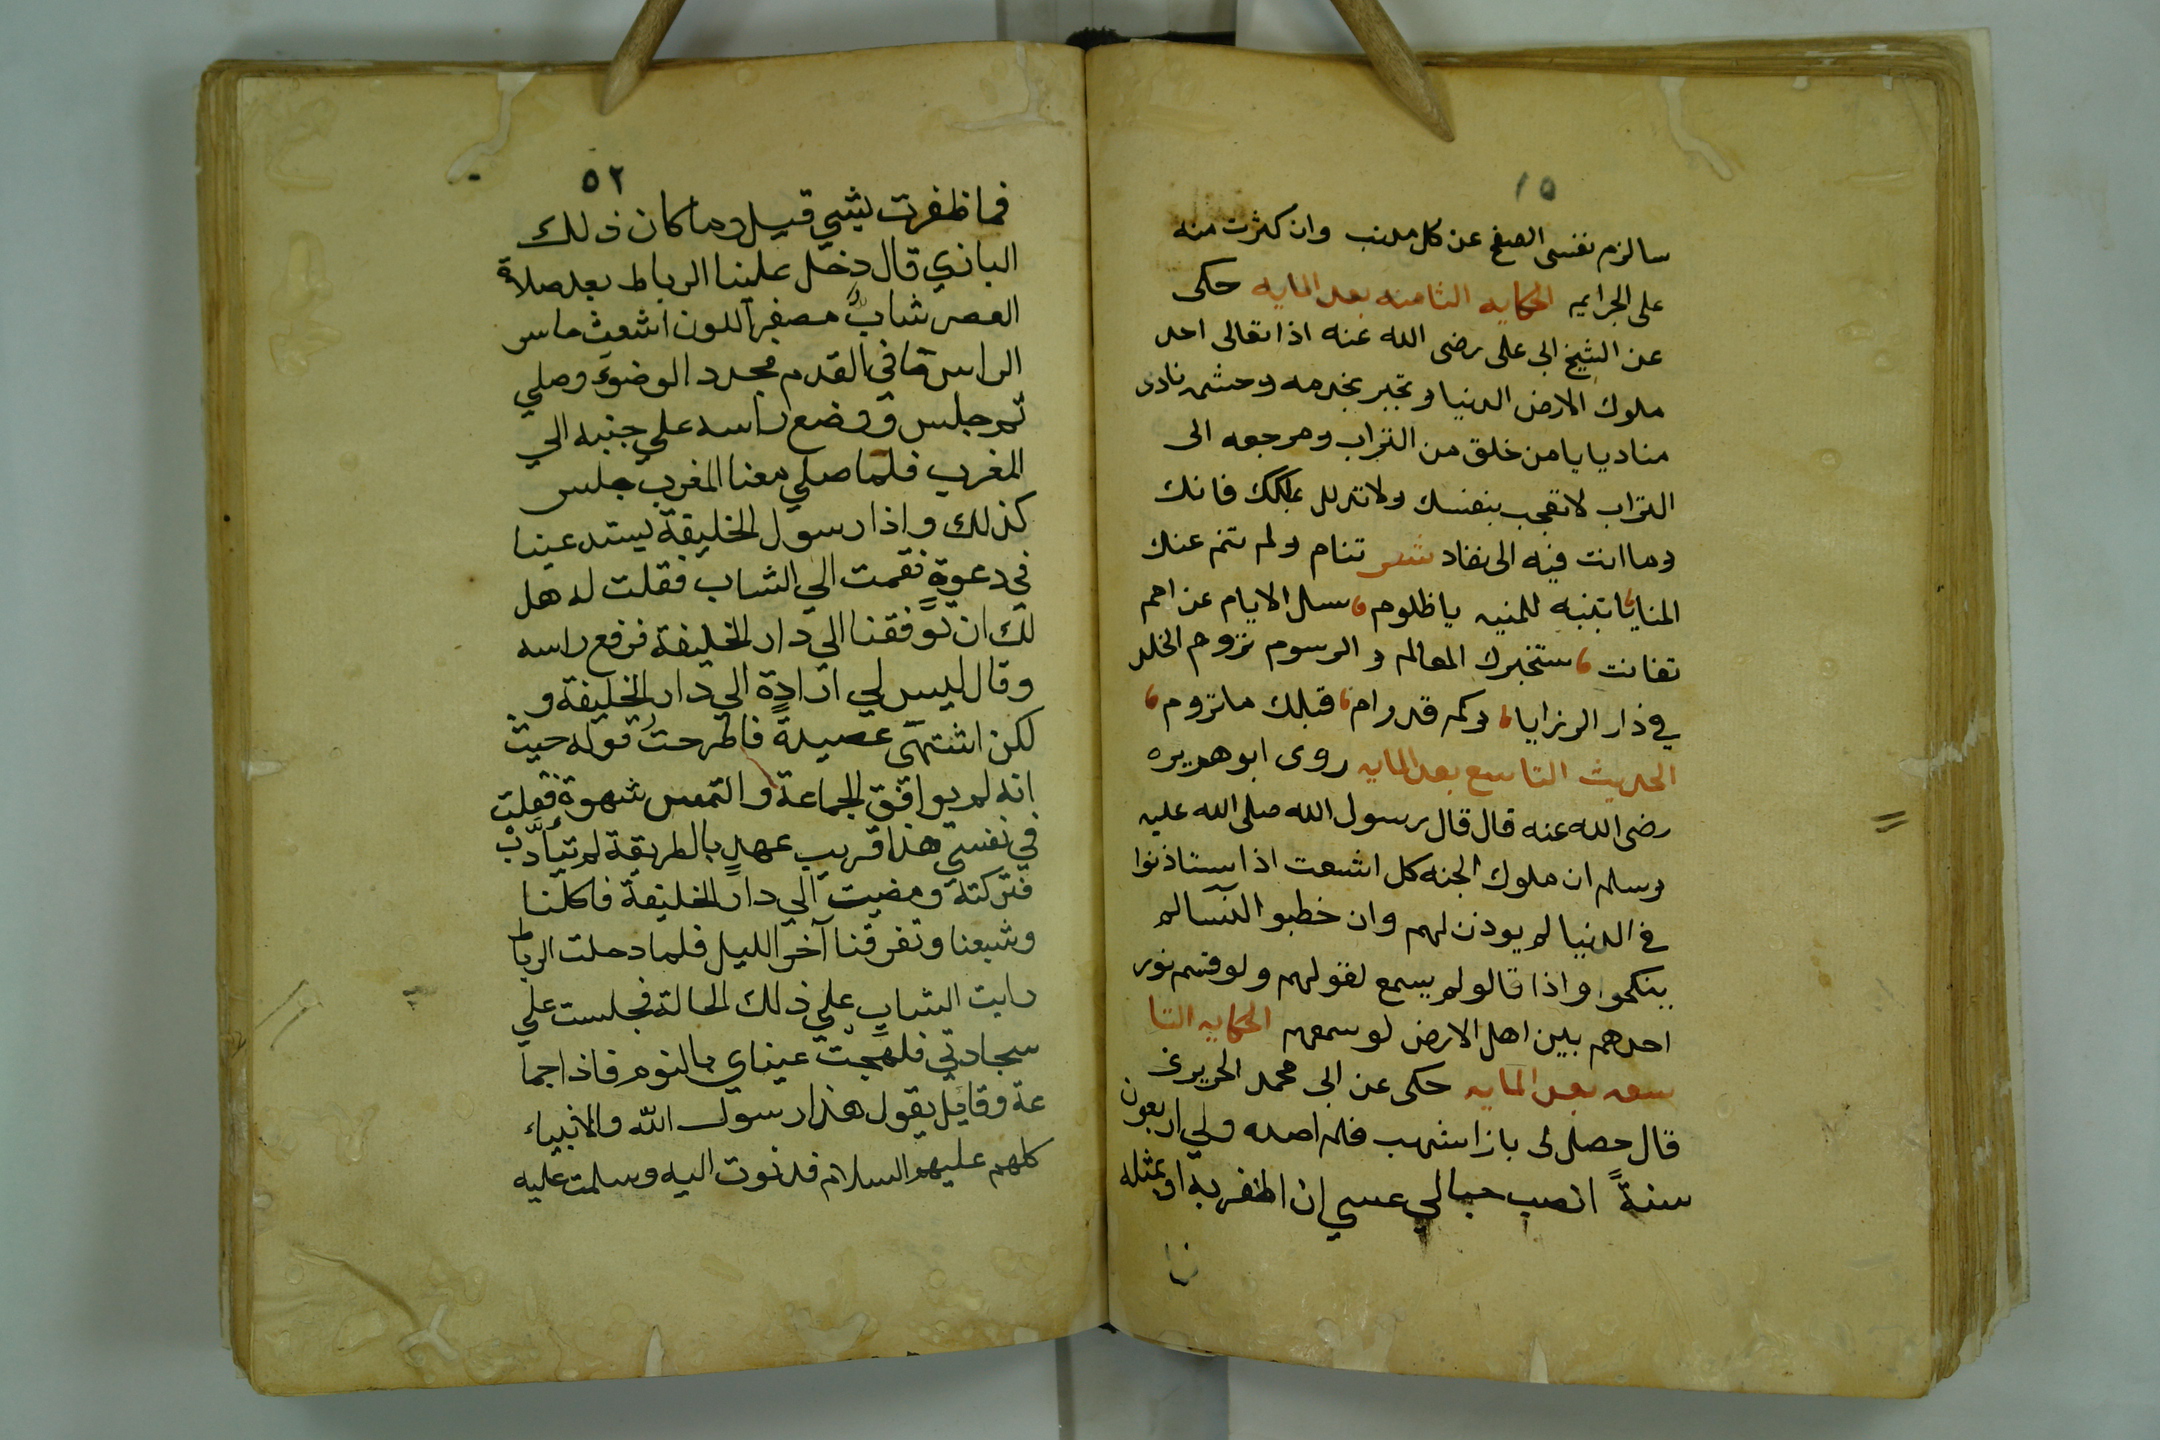 ١٥
سالزم نفسى الصفح عن كل مذنب وان كثرت منه
على الجرايم الحكايه الثامنه بعد المايه حكى
عن الشيخ ابى على رضى الله عنه اذا تعالى احد
ملوك الارض الدنيا وتجبر بخدمه وحشمه نادى
مناديا يا من خلق من التراب ومرجعه الى
التراب لا تعجب بنفسك ولا تدلل بملكك فانك
وما انت فيه الى نفاد شعر تنام ولم تنم عنك
المنايا تنبه للمنيه يا ظلوم سل الايام عن امم
تفانت ستخبرك المعالم و الرسوم تروم الخلد
في دار الرزايا وكم قد رام قبلك ما تروم
الحديث التاسع بعد المايه روى ابو هريره
رضى الله عنه قال قال رسول الله صلى الله عليه
وسلم ان ملوك الجنه كل اشعت اذا استاذنوا
فى الدنيا لم يوذن لهم وان خطبو النسا لم
ينكحوا واذا قالو لم يسمع لقولهم ولو قسم نور
احدهم بين اهل الارض لوسعهم الحكايه التا
سعه بعد المايه حكى عن ابى محمد الحريرى
قال حصل لى باز اشهب فلم اصده ولي اربعون
سنةً انصب حبالي عسي ان اظفر به او بمثله
فما
٥٢
فما ظفرت بشي قيل وما كان ذلك
البازي قال دخل علينا الرباط بعد صلاة
العصر شابٌ مصفر اللون اشعث حاسر
الراس حافى القدم مجدد الوضوء وصلي
ثم جلس و وضع راسه علي جنبه الي
المغرب فلما صلي معنا المغرب جلس
كذلك واذا رسول الخليفة يستدعينا
في دعوة فقمت الي الشاب فقلت له هل
لك ان توفقنا الي دار الخليفة فرفع راسه
وقال ليس لي ارادة الي دار الخليفة و
لكن اشتهي عصيدةً فاطرحتُ قوله حيث
انه لم يوافق الجماعة والتمس شهوة فقلت
في نفسي هذا قريب عهدٍ بالطريقة لم يتادب
فتركته ومضيت الي دار الخليفة فاكلنا
وشبعنا وتفرقنا آخر الليل فلما دخلت الرباط
رايت الشاب علي ذلك الحالة فجلست علي
سجادتي فلهجت عيناي بالنوم فاذا جما
عة وقايل يقول هذا رسول الله والانبياء
كلهم عليهم السلام فدنوت اليه وسلمت عليه